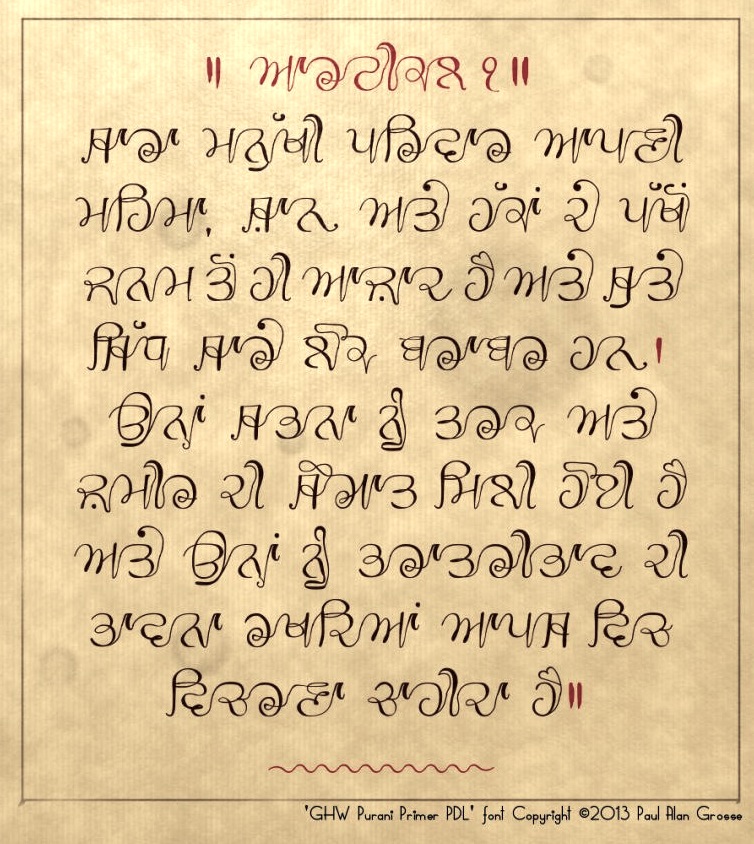 ॥ ਆਰਟੀਕਲ ੧ ॥
ਸਾਰਾ ਮਨੁੱਖੀ ਪਰਿਵਾਰ ਆਪਣੀ
ਮਹਿਮਾ, ਸ਼ਾਨ ਅਤੇ ਹੱਕਾਂ ਦੇ ਪੱਖੋਂ
ਜਨਮ ਤੋਂ ਹੀ ਆਜ਼ਾਦ ਹੈ ਅਤੇ ਸੁਤੇ
ਸਿੱਧ ਸਾਰੇ ਲੋਕ ਬਰਾਬਰ ਹਨ।
ਉਨ੍ਹਾਂ ਸਭਨਾ ਨੂੰ ਤਰਕ ਅਤੇ
ਜ਼ਮੀਰ ਦੀ ਸੌਗਾਤ ਮਿਲੀ ਹੋਈ ਹੈ
ਅਤੇ ਉਨ੍ਹਾਂ ਨੂੰ ਭਰਾਤਰੀਭਾਵ ਦੀ
ਭਾਵਨਾ ਰਖਦਿਆਂ ਆਪਸ ਵਿਚ
ਵਿਚਰਣਾ ਚਾਹੀਦਾ ਹੈ॥
'GHW Purani Primer PDL' font Copyright ©2013 Paul Alan Grosse